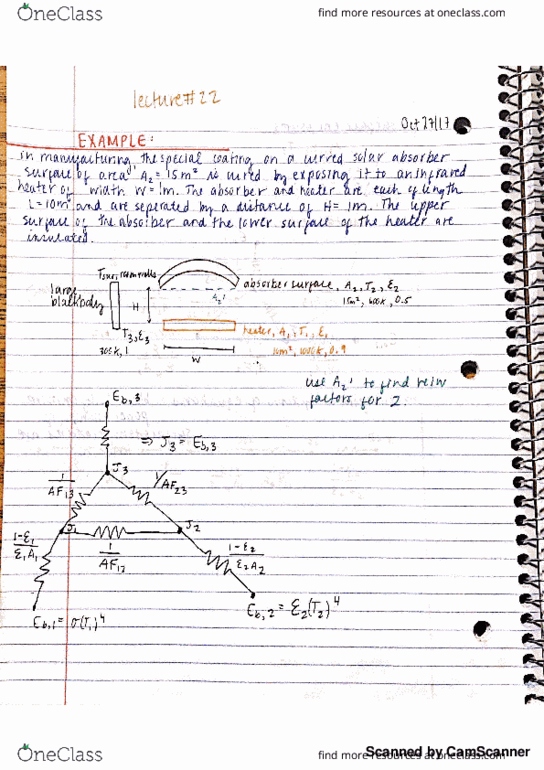 OneClass
find more resources at oneclass.com
lecture #22
Oct 27/17
EXAMPLE:
in manufacturing, the special coating on a curved solar absorber
surface of area A₂ = 15m² is cured by exposing it to an infrared
heater of width W=1m. The absorber and heater are each of length
L=10m and are seperated by a distance of H=1m. The upper
surface of the absorber and the lower surface of the heater are
insulated.
Tsur, room walls
large
blackbody
H
A₂'
absorber surface, A₂, T₂, ε₂
15m², 600K, 0.5
T₃, ε₃
300K, 1
heater, A₁, T₁, ε₁
10m², 1000K, 0.9
W
use A₂' to find view
factors for 2.
Eb,3
⇒ J₃ = Eb,3
J₃
1/AF₁₃
1/AF₂₃
J₁
J₂
1-ε₁/ε₁A₁
1/AF₁₂
1-ε₂/ε₂A₂
Eb,1 = σ(T₁)⁴
Eb,2 = ε₂(T₂)⁴
OneClass
find more resources at oneclass.com
Scanned by CamScanner